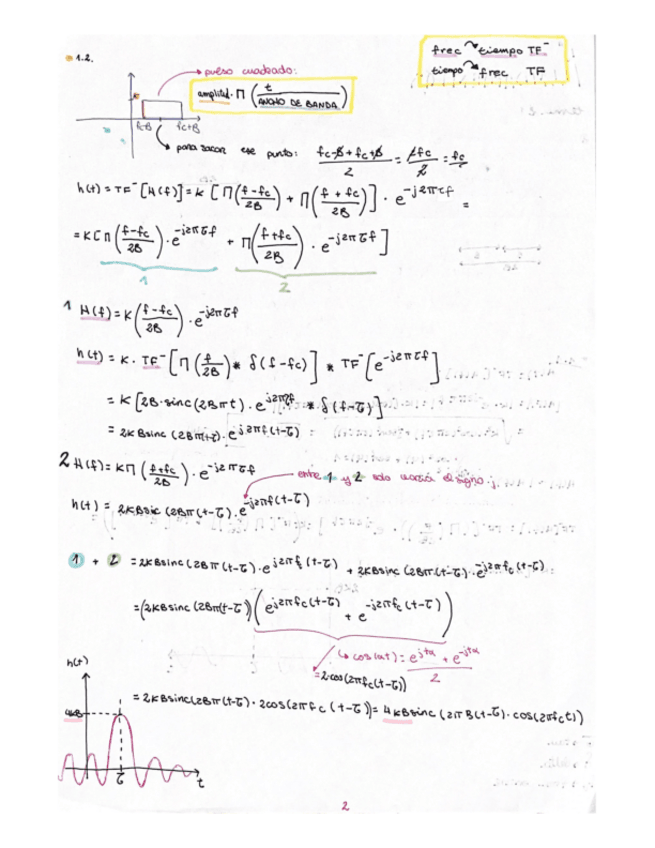 1.2.
frec ↷ tiempo TF⁻
tiempo ↷ frec TF
pulso cuadrado:
amplitud. Π (t / ANCHO DE BANDA)
fc-B fc+B
para sacar ese punto: (fc-B+fc+B)/2 = 2fc/2 = fc
h(t) = TF⁻[H(f)] = K [Π((f-fc)/2B) + Π((f+fc)/2B)] · e^(-j2πτf) =
= K[Π((f-fc)/2B) · e^(-j2πτf) + Π((f+fc)/2B) · e^(-j2πτf)]
1 2
1 H(f) = K((f-fc)/2B) · e^(-j2πτf)
h(t) = K · TF⁻[Π(f/2B) * δ(f-fc)] * TF⁻[e^(-j2πτf)]
= K[2B·sinc(2Bπt) · e^(j2πf) * δ(t-τ)]
= 2KBsinc(2Bπ(t-τ) · e^(j2πf(t-τ)
2 H(f) = KΠ((f+fc)/2B) · e^(-j2πτf)
entre 1 y 2 solo varía el signo j.
h(t) = 2KBsinc(2Bπ(t-τ) · e^(-j2πf(t-τ)
1 + 2 = 2KBsinc(2Bπ(t-τ) · e^(j2πfc(t-τ) + 2KBsinc(2Bπ(t-τ) · e^(-j2πfc(t-τ)
= (2KBsinc(2Bπ(t-τ))(e^(j2πfc(t-τ) + e^(-j2πfc(t-τ))
↳ cos(αt) = (e^(jtα) + e^(-jtα))/2
= 2·cos(2πfc(t-τ))
h(t)
= 2KBsinc(2Bπ(t-τ) · 2cos(2πfc(t-τ)) = 4KBsinc(2πB(t-τ) · cos(2πfct))
4KB
τ t
2